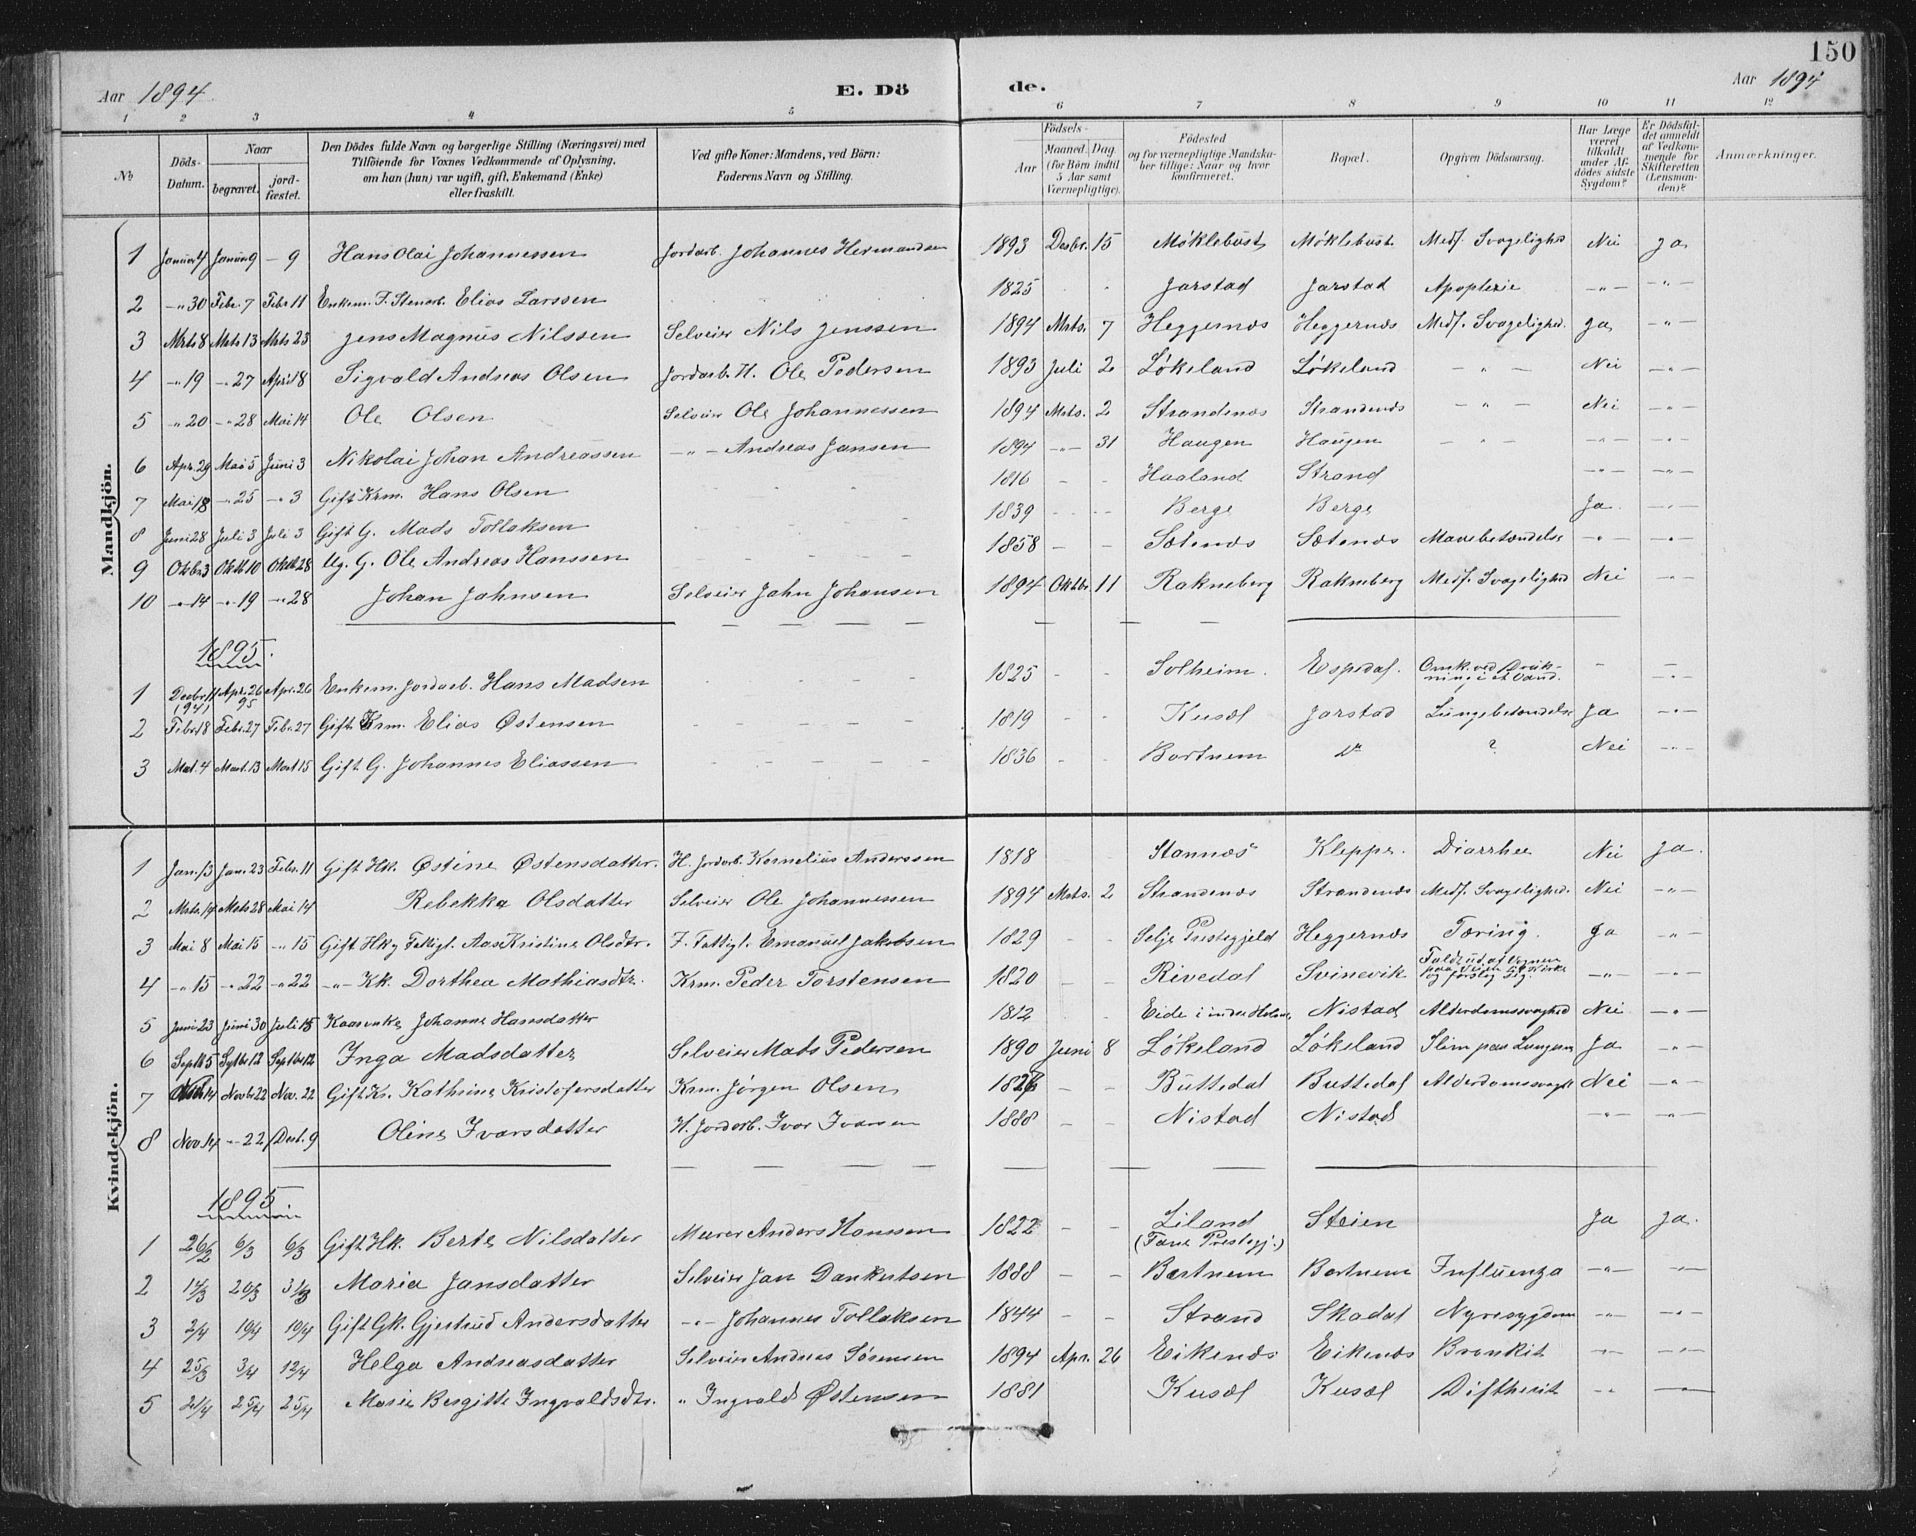 150
Aar 1894 E. Dö de. Aar 1894
1 2 3 4 5 6 7 8 9 10 11 12
No Döds-Datum. Naar begravet. jordfæstet. Den Dödes fulde Navn og borgerlige Stilling (Næringsvei) med Tilföiende for Voxnes Vedkommende af Oplysning, om han (hun) var ugift, gift, Enkemand (Enke) eller fraskilt. Ved gifte Koner: Mandens, ved Börn: Faderens Navn og Stilling. Födsels- Aar Maaned. Dag. (for Börn indtil 5 Aar samt Værnepligtige). Födested og for værnepligtige Mandskaber tillige: Naar og hvor konfirmeret. Bopæl. Opgiven Dödsaarsag. Har Læge været tilkaldt under Afdödes sidste Sygdom? Er Dödsfaldet anmeldt af Vedkommende for Skifteretten (Lensmanden)? Anmærkninger.
Mandkjön.
1 Januar 4 Januar 9 - 9 Hans Olai Johannessen Jordarb. Johannes Hermandsen 1893 Desbr. 15 Møklebust Møklebust Medf. Svagelighed Nei ja
2 -"- 30 Febr. 7 Febr 11 Enkem. F. Stenarb. Elias Larssen 1825 Jarstad Jarstad Apoplexie -"- -"-
3 Mrts 8 Mrts 13 Mrts 23 Jens Magnus Nilssen Selveier Nils Jenssen 1894 Mrts. 7 Heggernæs Heggernæs Medf. Svagelighd. Ja -"-
4 -"- 19 -"- 27 April 8 Sigvald Andreas Olsen Jordarb. H. Ole Pedersen 1893 Juli 2 Løkeland Løkeland - " - Nei -"-
5 -"- 20 -"- 28 Mai 14 Ole Olsen Selveier Ole Johannessen 1894 Mrts. 2 Strandenæs Strandenæs - " - Nei -"-
6 Apr. 29 Mai 5 Juni 3 Nikolai Johan Andreassen -"- Andreas Jansen 1894 -"- 31 Haugen Haugen - " - -"- -"-
7 Mai 18 -"- 25 -"- 3 Gift Krm. Hans Olsen 1816 Haaland Strand -"- -"-
8 Juni 28 Juli 3 Juli 3 Gift G. Mads Tollaksen 1839 Berge Berge Ja -"-
9 Oktbr 3 Oktb 10 Oktb 28 Ug. G. Ole Andreas Hanssen 1858 Sætenæs Sætenæs Mavebetændelse -"- -"-
10 -"- 14 -"- 19 -"- 28 Johan Jahnsen Selveier Jahn Johansen 1894 Oktbr. 11 Rakneberg Rakneberg Medf. Svagelighed Nei -"-
1895.
1 Decbr 11 (94) Apr. 26 95 Apr. 26 Enkem. Jordarb. Hans Madsen 1825 Solheim. Espedal. Omk. ved Drukning i et Vand. - -"-
2 Febr 18 Febr. 27 Febr. 27 Gift Krm. Elias Østensen 1819 Kusæl Jarstad Lungebetændelse Ja -"-
3 Mat. 4 Mart. 13 Mart 15 Gift G. Johannes Eliassen 1836 Bortnem Do ? Nei -"-
Kvindekjön.
1 Jan. 13 Jan. 23 Febr. 11 Gift Hk. Østine Østensdatter. H. Jordarb. Kornelius Anderssen 1818 Stannæs Kleppe. Diarrhee Nei Ja.
2 Mrts. 14 Mrts 28 Mai 14 Rebekka Olsdatter Selveier Ole Johannessen 1894 Mrts. 2 Strandenæs Strandenæs Medf. Svagelighed. Nei -"-
3 Mai 8 Mai 15 -"- 15 Gift Hkg Fattigl. Aase Kristine Olsdtr. F. Fattigl. Emanuel Jakobsen 1829 Selje Prestegjeld Heggernæs Tæring. Ja -"-
4 -"- 15 -"- 22 -"- 22 -"- Kk. Dorthea Mathiasdtr. Krm. Peder Torstensen 1820 Rivedal Svinevik Faldt ud af Vognen paa Veien t. Kirke og forslog sig. -"- -"-
5 Juni 23 Juni 30 Juli 15 Kaarenke Johanne Hansdatter 1812 Eide i indre Holme Nistad Alderdomssvaghed Nei -"-
6 Septb 5 Septbr 12 Septbr 12 Inga Madsdatter Selveier Mats Pedersen 1890 Juni 8 Løkeland Løkeland Slim paa Lungen Ja -"-
7 14 Novbr 22 Nov. 22 Gift Kr. Kathrine Kristofersdatter Krm. Jørgen Olsen 1826 Buttedal Buttedal Alderdomssvagh Nei -"-
8 Nov. 14 -"- 22 Dest. 9 Oline Ivarsdatter H. Jordarb. Ivar Ivarsen 1888 Nistad Nistad -"- -"-
1895.
1 26/2 6/3 6/3 Gift Hk. Berte Nilsdatter Murer Anders Hanssen 1822 Liland (Fane Prestegj.) Steien Ja Ja.
2 17/3 20/3 31/3 Maria Jansdatter Selveier Jan Dankertsen 1888 Bortnem Bortnem Influenza -"- -"-
3 2/4 19/4 19/4 Gift Gk. Gjertrud Andersdatter -"- Johannes Tollaksen 1844 Strand Skadal Nyresygdom -"- -"-
4 25/3 3/4 12/4 Helga Andreasdatter Selveier Andreas Sørensen 1894 Apr. 26 Eikenæs Eikenæs Bronkit -"- -"-
5 21/4 25/4 25/4 Marie Bergitte Ingvaldsdtr. " Ingvald Østensen 1881 Kusæl Kusæl Diftherit -"-